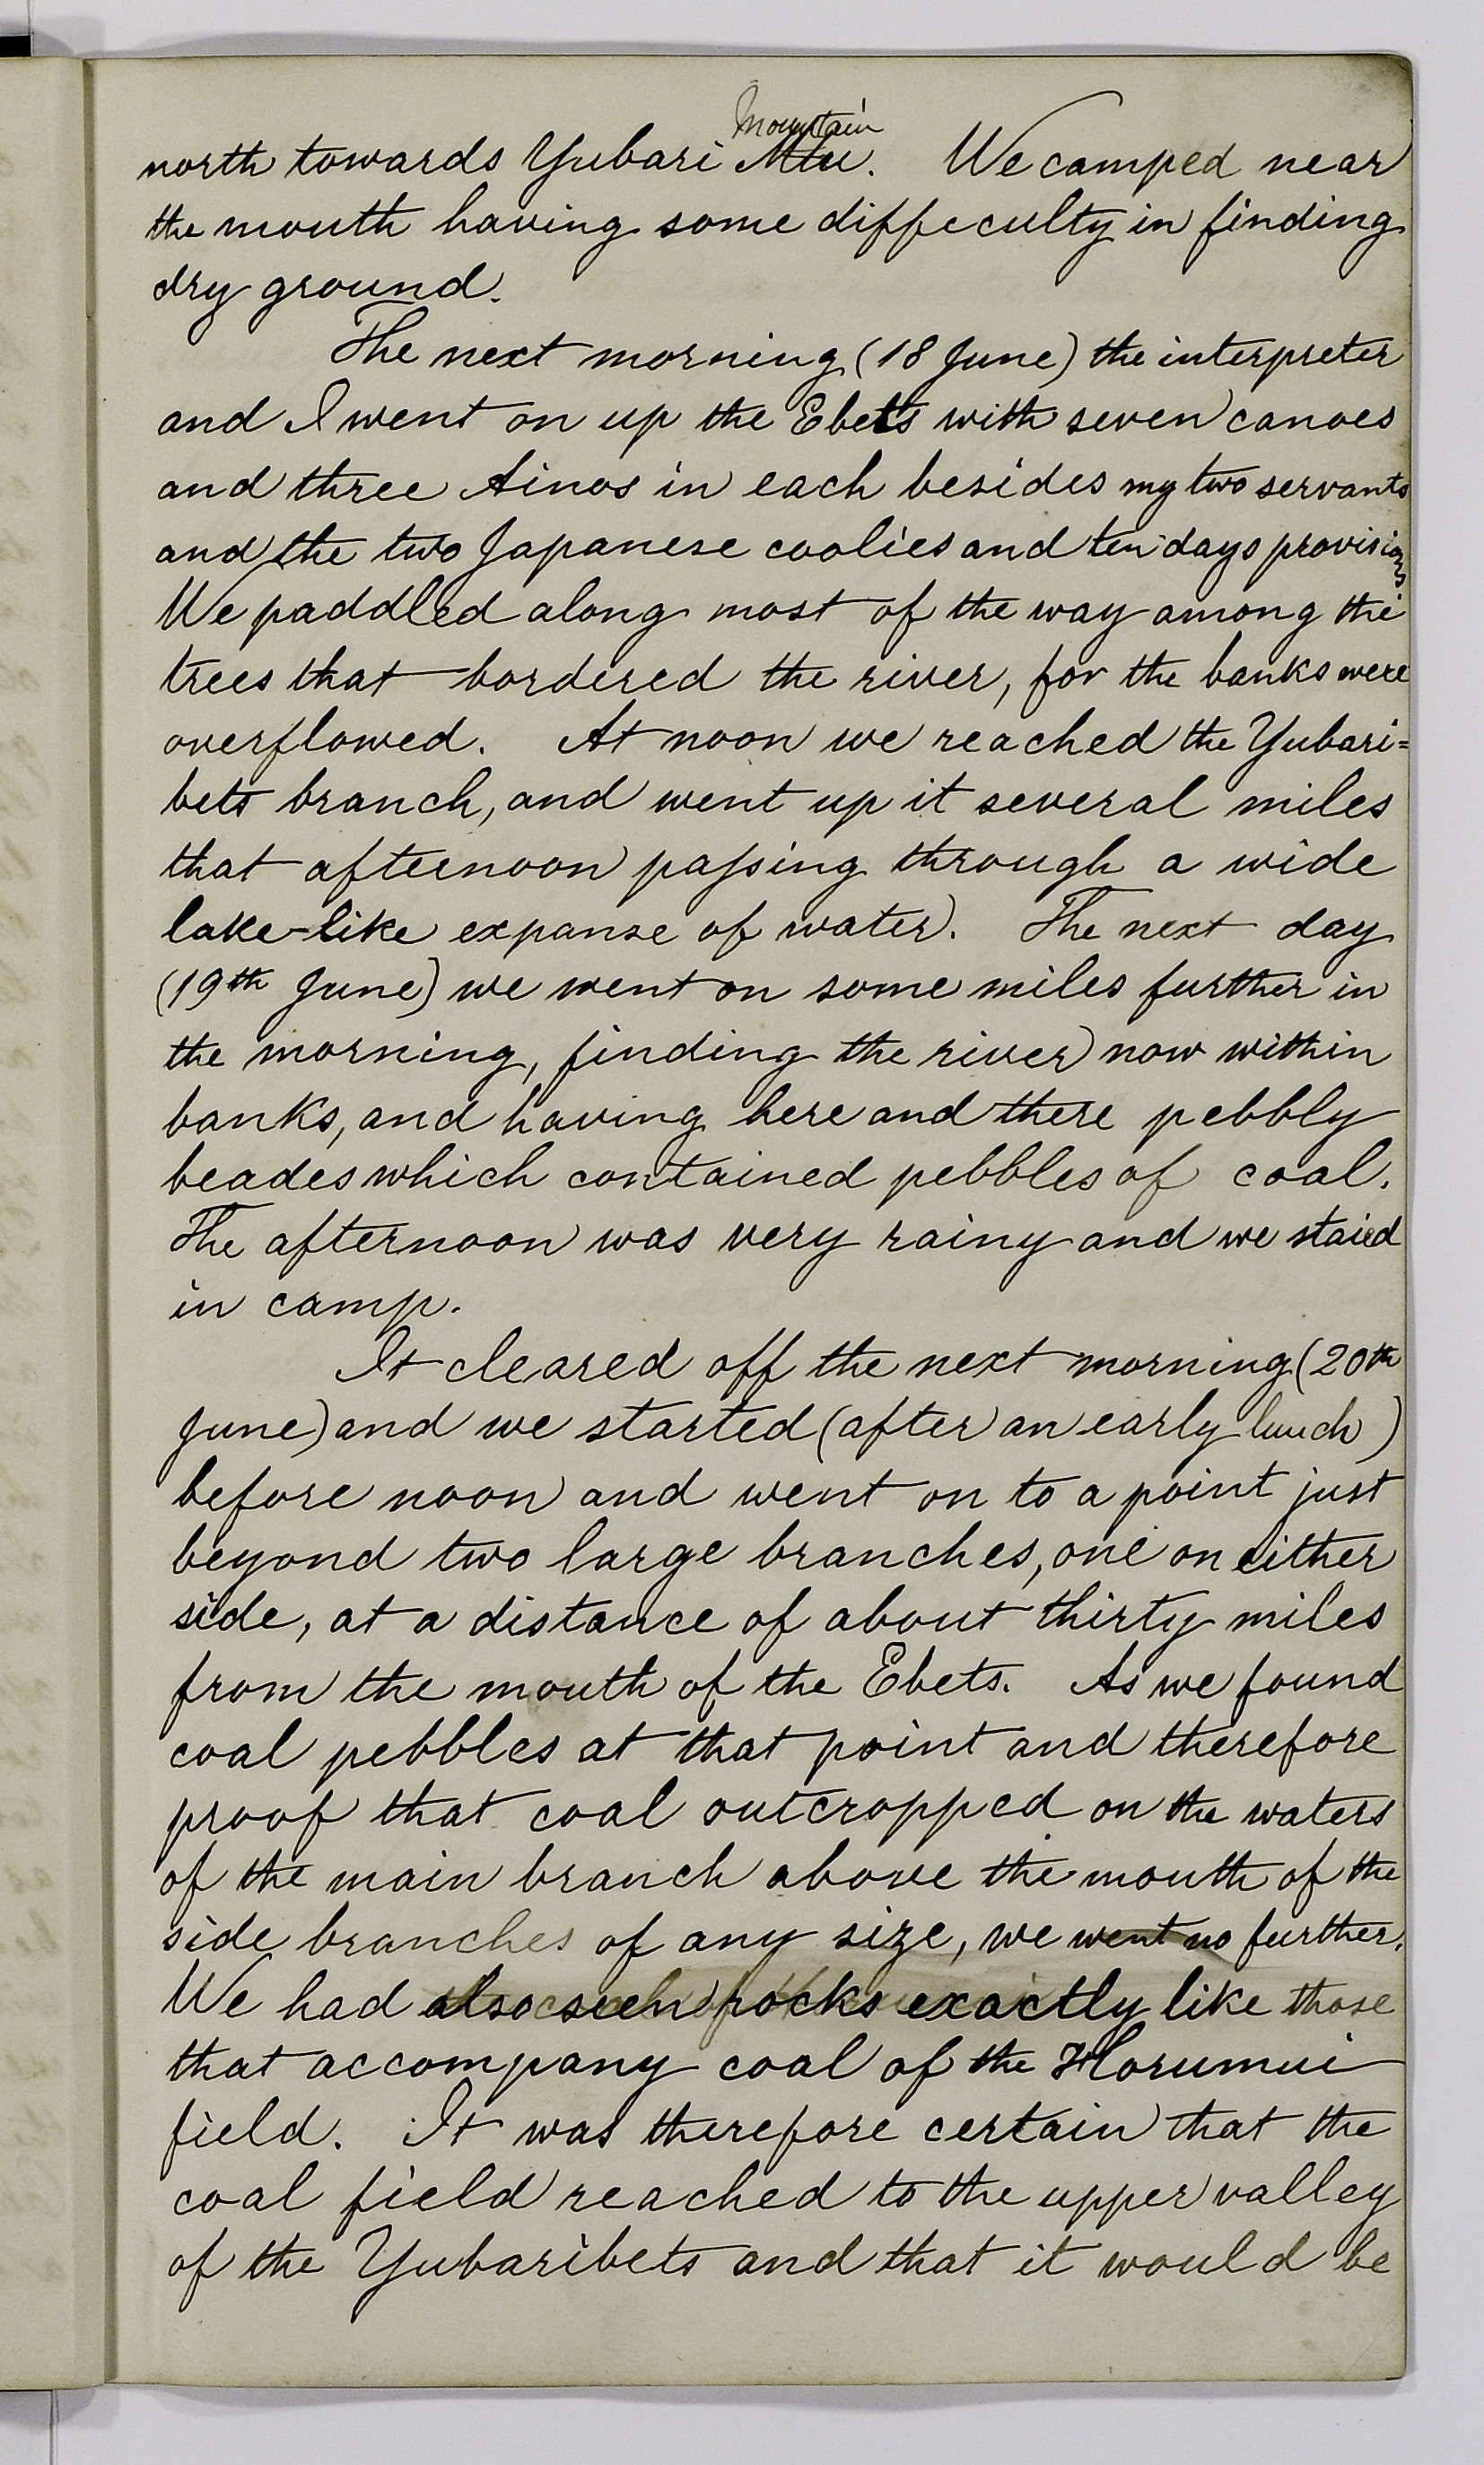 north towards Yubari Mtn. Mountain We camped near
the mouth having some difficulty in finding
dry ground.
The next morning (18 June) the interpreter
and I went on up the Ebets with seven canoes
and three Ainos in each besides my two servants
and the two Japanese coolies and ten days provisions
We paddled along most of the way among the
trees that bordered the river, for the banks were
overflowed. At noon we reached the Yubari=
bets branch, and went up it several miles
that afternoon passing through a wide
lake-like expanse of water. The next day
(19th June) we went on some miles further in
the morning, finding the river now within
banks, and having here and there pebbly
beades which contained pebbles of coal.
The afternoon was very rainy and we staied
in camp.
It cleared off the next morning (20th
June) and we started (after an early lunch)
before noon and went on to a point just
beyond two large branches, one on either
side, at a distance of about thirty miles
from the mouth of the Ebets. As we found
coal pebbles at that point and therefore
proof that coal outcropped on the waters
of the main branch above the mouth of the
side branches of any size, we went no further.
We had also seen rocks exactly like those
that accompany coal of the Horumui
field. It was therefore certain that the
coal field reached to the upper valley
of the Yubaribets and that it would be